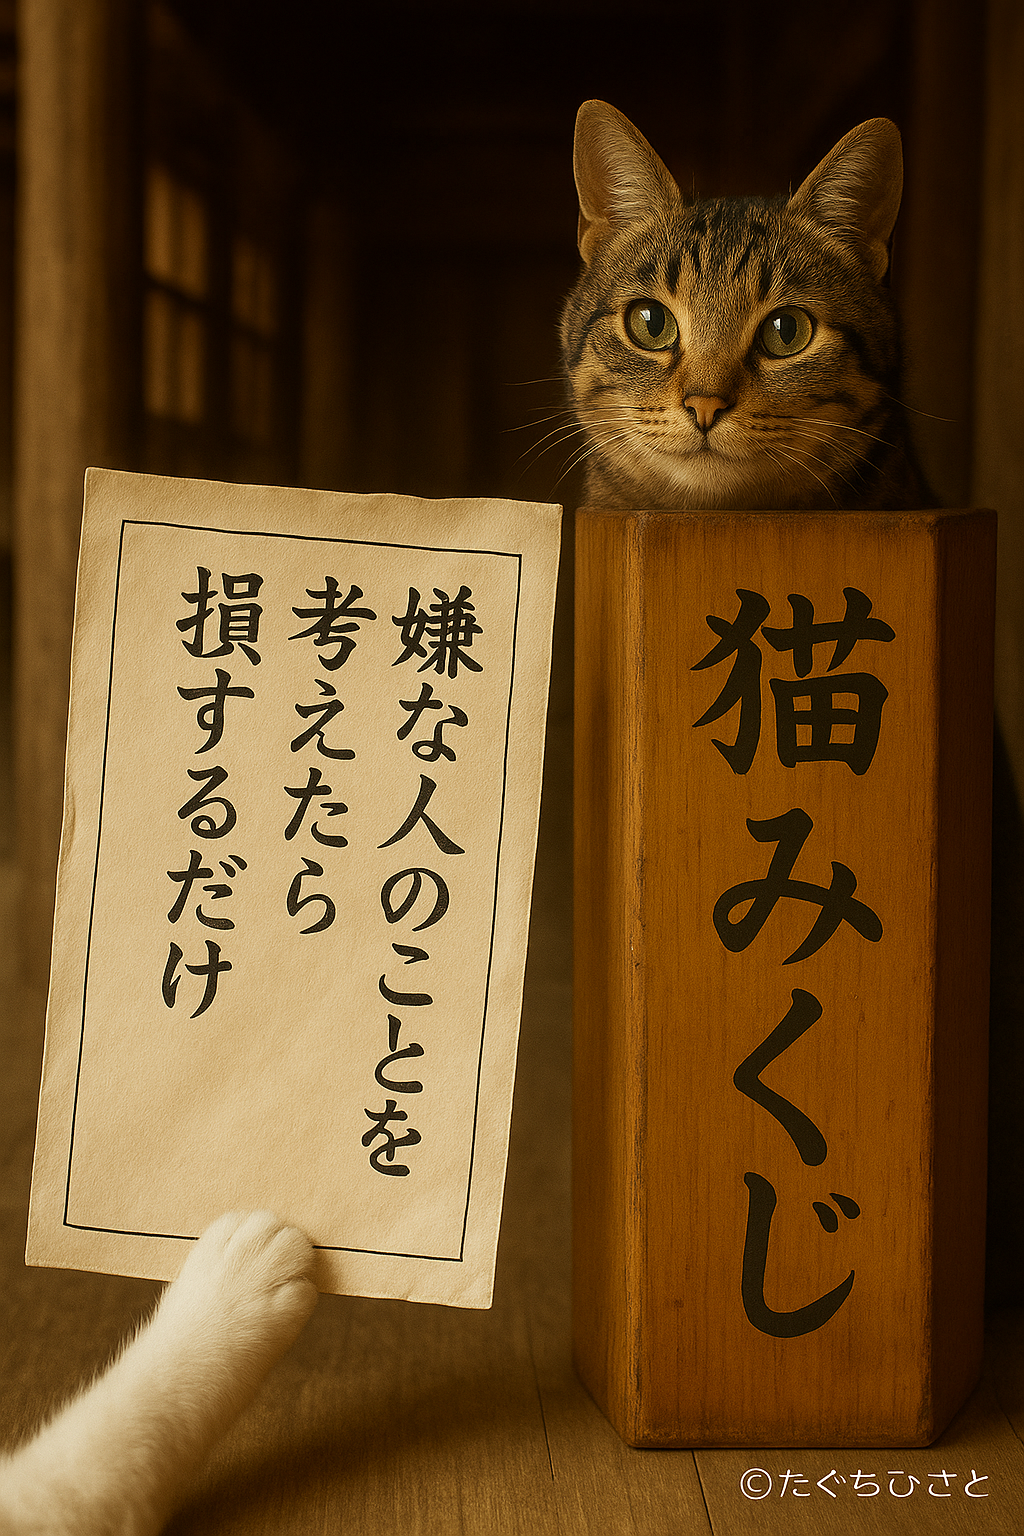 嫌な人のことを
考えたら
損するだけ
猫みくじ
©たぐちひさと